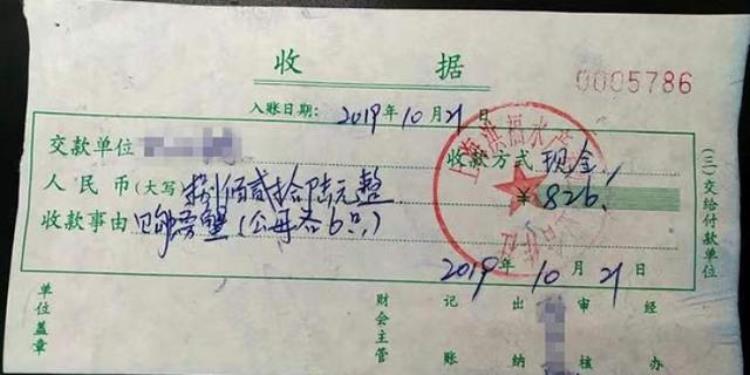 收 据
0005786
入账日期: 2019年10月21日
交款单位 收款方式 现金
人民币(大写) 捌佰贰拾陆元整 ¥826
收款事由 购螃蟹(公母各6只)
2019年10月21日
(三)交给付款单位
单位盖章 财会主管 记账 出纳 审核 经办